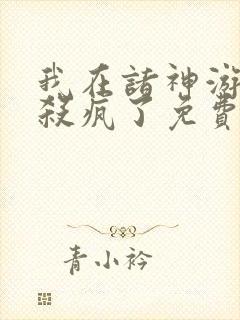 我在諸神游
殺瘋了免費
青小衿